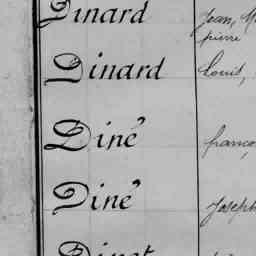 Dinard Jean, M
pierre
Dinard Louis,
Diné franço
Diné Joseph
Dinet